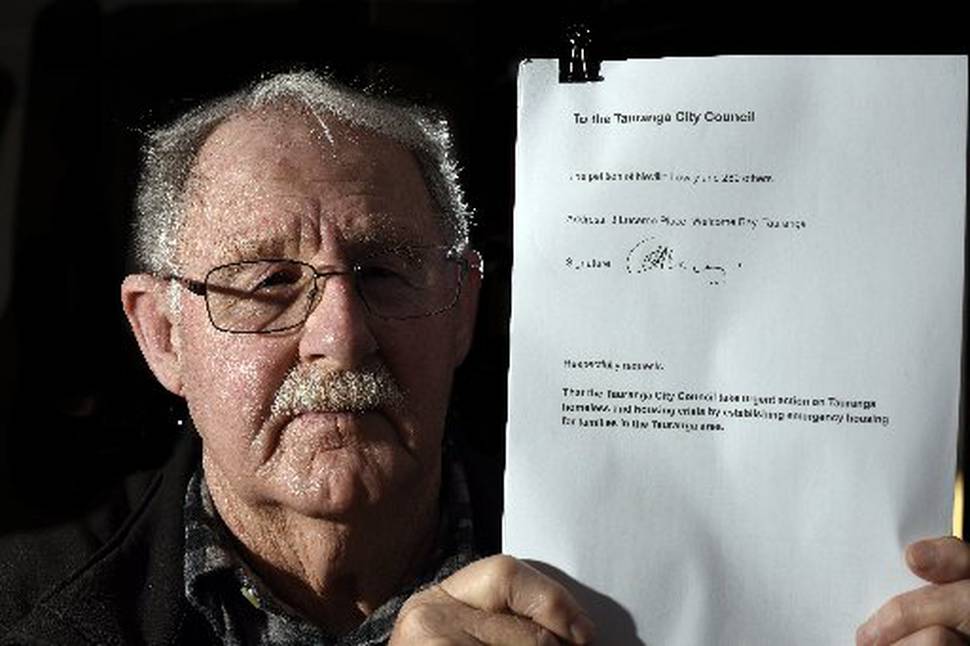 To the Tauranga City Council
The petition of and 280 others
Address: Place Welcome Bay Tauranga
Signature
Respectfully requests
That the Tauranga City Council take urgent action on Tauranga
homeless and housing crisis by establishing emergency housing
for families in the Tauranga area.